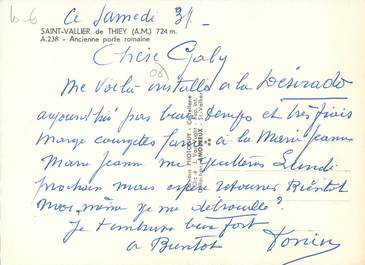 Ce Samedi 31
SAINT-VALLIER de THIEY (A.M.) 724 m.
A.238 - Ancienne porte romaine
Chère Gaby
me voilà installée a la Désirade
aujourd'hui pas beau temps et très frais
mange courgettes a la Marie Jeanne
Marie Jeanne me quittera Lundi
prochain mais espère retourner Bientot
moi même je me
Je t'embrasse bien fort
a Bientot Tonin